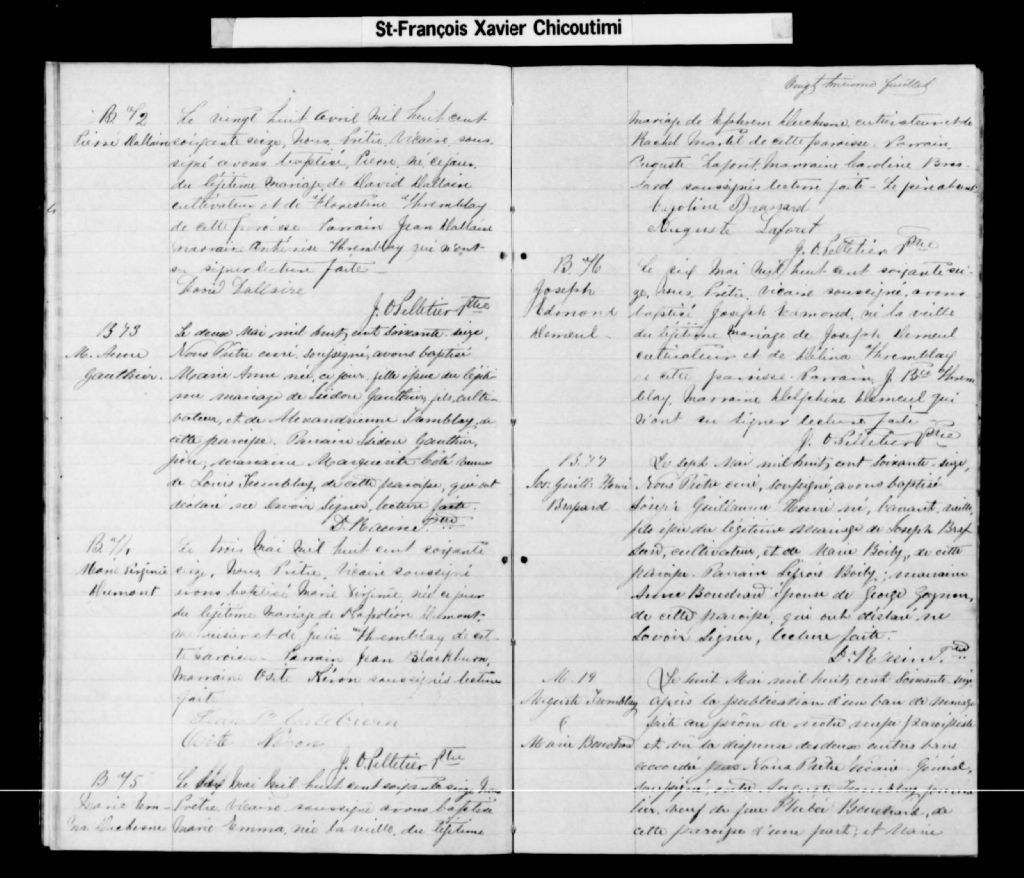 St-François Xavier Chicoutimi
B 72
Pierre Dallaire
Le vingt huit Avril Mil huit cent
soixante seize, Nous Prêtre, Vicaire sous-
signé avons baptisé, Pierre, né ce jour,
du légitime mariage de David Dallaire
cultivateur et de Florestine Thremblay
de cette paroisse Parrain Jean Dallaire
marraine Thremblay qui n'ont
su signer lecture faite
David Dallaire
J. O Pelletier Ptre
B 73
M. Anne
Gauthier.
Le deux Mai mil huit cent soixante seize,
Nous Prêtre curé, soussigné, avons baptisé
Marie Anne née, ce jour, fille issue du légiti-
me mariage de Isidore Gauthier, culti-
vateur, et de Alexandrienne Tremblay, de
cette paroisse. Parrain Isidore Gauthier,
marraine Marguerite Côté veuve
de Louis Tremblay, de cette paroisse, qui ont
déclaré ne savoir signer, lecture faite.
D. Racine Ptre
B. 74
Marie Virginie
Dumont
Le trois Mai Mil huit cent soixante
seize, Nous, Prêtre, Vicaire soussigné
avons baptisé Marie Virginie, née ce jour
du légitime Mariage de Napoléon Dumont,
menuisier et de Julie Thremblay de cet-
te paroisse - Parrain Jean Blackburn,
Marraine Néron soussignés lecture
fait
Jean Blackburn
Néron
J. O. Pelletier Ptre
B 75
Marie Em-
ma Duchesne
Le six Mai Mil huit cent soixante seize Nous
Prêtre vicaire soussigné avons baptisé
Marie Emma, née la veille, du légitime
Vingt feuillet
mariage de Ephrem Duchesne cultivateur et de
Rachel Martel de cette paroisse. Parrain
Auguste Laforet Marraine Caroline Bras-
sard soussignés lecture faite - Le père absent
Caroline Brassard
Auguste Laforet
J. O Pelletier Ptre
B. 76
Joseph
Edmond
Demeul
Le six Mai Mil huit cent soixante sei-
ze, Nous Prêtre, Vicaire soussigné, avons
baptisé Joseph Edmond, né la veille
du légitime Mariage de Joseph Demeul
cultivateur et de Délina Thremblay
de cette paroisse. Parrain, J. Bte Threm
blay, Marraine Delphine Demeul qui
n'ont su signer lecture faite
J. O Pelletier Ptre
B 77
Jos. Guill. Henri
Brassard
Le sept Mai mil huit cent soixante-seize,
Nous Prêtre curé, soussigné, avons baptisé
Joseph Guillaume Henri né, veille,
fils issu du légitime mariage de Joseph Bras
sard, cultivateur, et de Marie Boily, de cette
paroisse. Parrain Boily; marraine
Anne Bouchard épouse de George Gagnon,
de cette paroisse, qui ont déclaré ne
savoir signer, lecture faite.
D. Racine Ptre
M. 19
Auguste Tremblay
&
Marie Bouchard
Le huit Mai mil huit cent soixante seize
après la publication d'un ban de mariage
faite au prône de notre messe paroissiale
et vu la dispense des deux autres bans
accordée par Nous Prêtre Vicaire Général,
soussigné, entre Auguste Tremblay
veuf de feue Phébée Bouchard, de
cette paroisse d'une part, et Marie